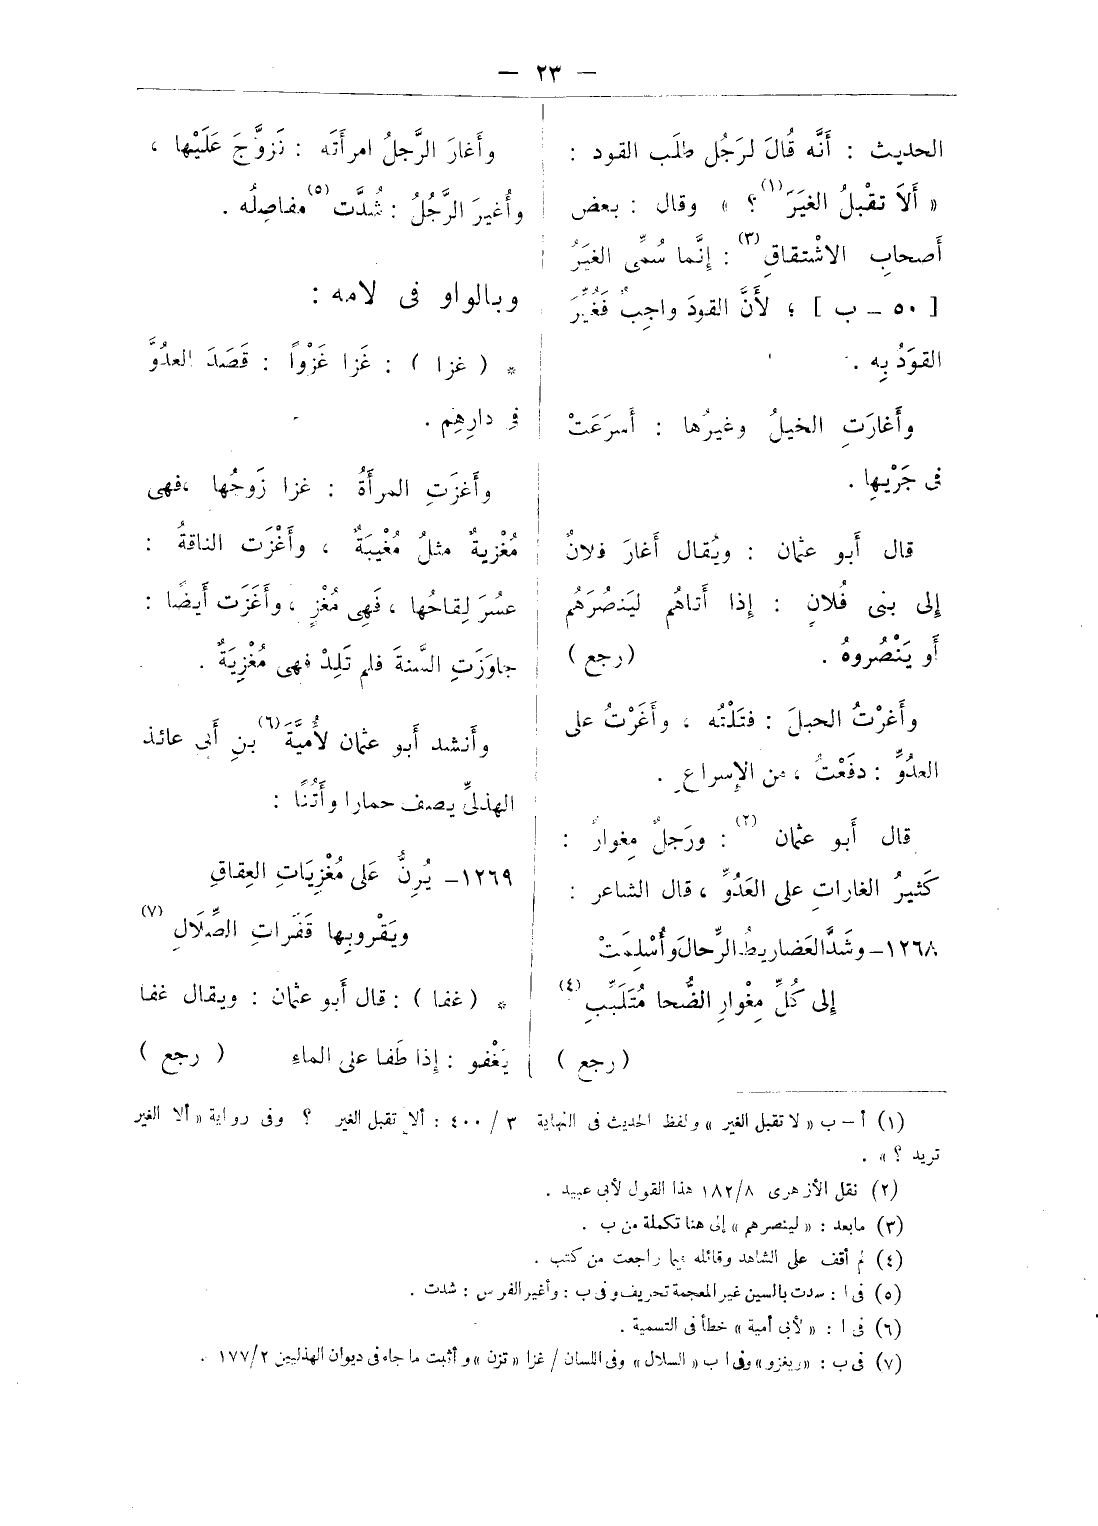 — ٢٣ —
الحديث : أَنَّه قُالَ لرَجُل طلَب القود :
« أَلاَ تقبلُ الغيَرَ (١) ؟ » وقال : بعض
أَصحابِ الاشْتقاقِ (٣) : إِنَّما سُمِّى الغيَرُ
[ ٥٠ ـ ب ] ؛ لأَنَّ القودَ واجِبٌ فَغُيِّرَ
القوَدُ بِه .
وأَغارَتِ الخيلُ وغيرُها : أَسرَعَتْ
فى جَرْيِها .
قال أَبو عثمان : ويُقال أَغارَ فلانٌ
إِلى بنى فُلانٍ : إِذا أَتاهُم ليَنصُرَهُم
أَو يَنْصُروهُ . (رجع )
وأَغرْتُ الحبلَ : فتَلْتُه ، وأَغَرْتُ على
العدُوِّ : دفَعْتُ ، من الإِسراعِ .
قال أَبو عثمان (٢) : ورَجلٌ مِغوارٌ :
كَثيرُ الغاراتِ على العَدُوِّ ، قال الشاعر :
١٢٦٨ـ وشَدَّ العَضاريطُ الرِّحالَ وأُسْلِمَتْ
إِلى كُلِّ مِغْوارِ الضُّحا مُتَلَبِّبِ (٤)
(رجع )
وأَغارَ الرَّجلُ امرأَتَه : تَزوَّجَ عَلَيْها ،
وأُغيرَ الرَّجُلُ : شُدَّت (٥) مفاصِلُه .
وبالواو فى لامه :
* ( غزا ) : غَزا غَزْواً : قَصَدَ العدُوَّ
فى دارِهِم .
وأَغزَتِ المرأَةُ : غزا زَوجُها ،فهى
مُغْزيةٌ مثلُ مُغْيِبَةٌ ، وأَغْزَت الناقةُ :
عسُرَ لِقاحُها ، فَهِى مُغْزٍ ، وأَغَزَت أَيضًا :
جاوَزَتِ السَّنةَ فلم تَلِدْ فهى مُغْزِيَةٌ .
وأَنشد أَبو عثمان لأُميَّةَ (٦) بنِ أَبى عائذ
الهذلىِّ يصف حمارا وأُتُنًا :
١٢٦٩ـ يُرِنُّ عَلى مُغْزِيَاتِ العِقاقِ
ويَقْروبِها قَفَرات الصِّلَالِ (٧)
* ( غفا ) : قال أَبو عثمان : ويقال غفا
يَغْفو : إِذا طَفا على الماءِ ( رجع )
(١) أ – ب « لا تقبل الغير » ولفظ الحديث فى النهاية ٣ / ٤٠٠ : ألا تقبل الغير ؟ وفى رواية « ألا الغير
تريد ؟ » .
(٢) نقل الأزهرى ٨/ ١٨٢ هذا القول لأبى عبيد .
(٣) مابعد : « لينصرهم » إلى هنا تكملة من ب .
(٤) لم أقف على الشاهد وقائله فيما راجعت من كتب .
(٥) فى ا : سدت بالسين غير المعجمة تحريف وفى ب : وأغير الفرس : شدت .
(٦) فى ا : « لأبى أمية » خطأ فى التسمية .
(٧) فى ب : «ريغزو» وفى ا ب « السلال » وفى اللسان / غزا « تزن » و أثبت ما جاء فى ديوان الهذليين ٢ / ١٧٧ .